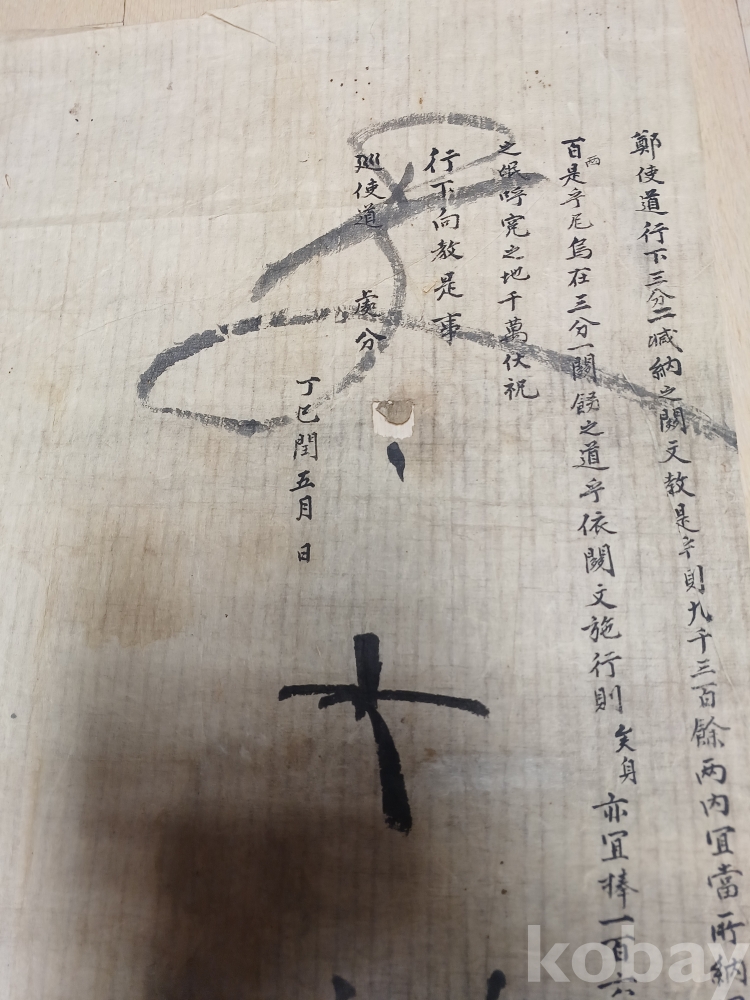 鄭使道行下三分二減納之關文教是乎則九千三百餘兩內宜當所納
百兩是乎尼烏在三分一關飭之道乎依關文施行則矣身亦宜捧一百六
之氓呼寃之地千萬伏祝
行下向教是事
廵使道 處分
丁巳閏五月 日
kobay